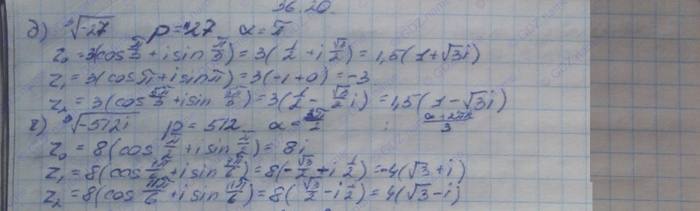 36.20.
д) ∛-27 ρ=27 α=π
z₀=3(cos π/3 + i sin π/3) = 3(1/2 + i √3/2) = 1,5(1+√3i)
z₁=3(cos π + i sin π) = 3(-1+0) = -3
z₂=3(cos 5π/3 + i sin 5π/3) = 3(1/2 - √3/2 i) = 1,5(1-√3i)
г) ∛-512i ρ=512 α=3π/2 ; α+2πk/3
z₀=8(cos π/2 + i sin π/2) = 8i
z₁=8(cos 7π/6 + i sin 7π/6) = 8(-√3/2 + i 1/2) = -4(√3+i)
z₂=8(cos 11π/6 + i sin 11π/6) = 8(√3/2 - i 1/2) = 4(√3-i)